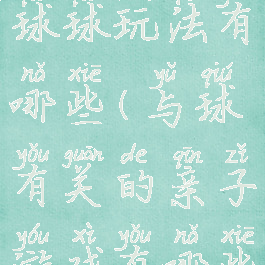 球球玩法有
nǎ xiē yǔ qiú
哪些(与球
yǒu guān de qīn zǐ
有关的亲子
yóu xì yǒu nǎ xiē
游戏有哪些